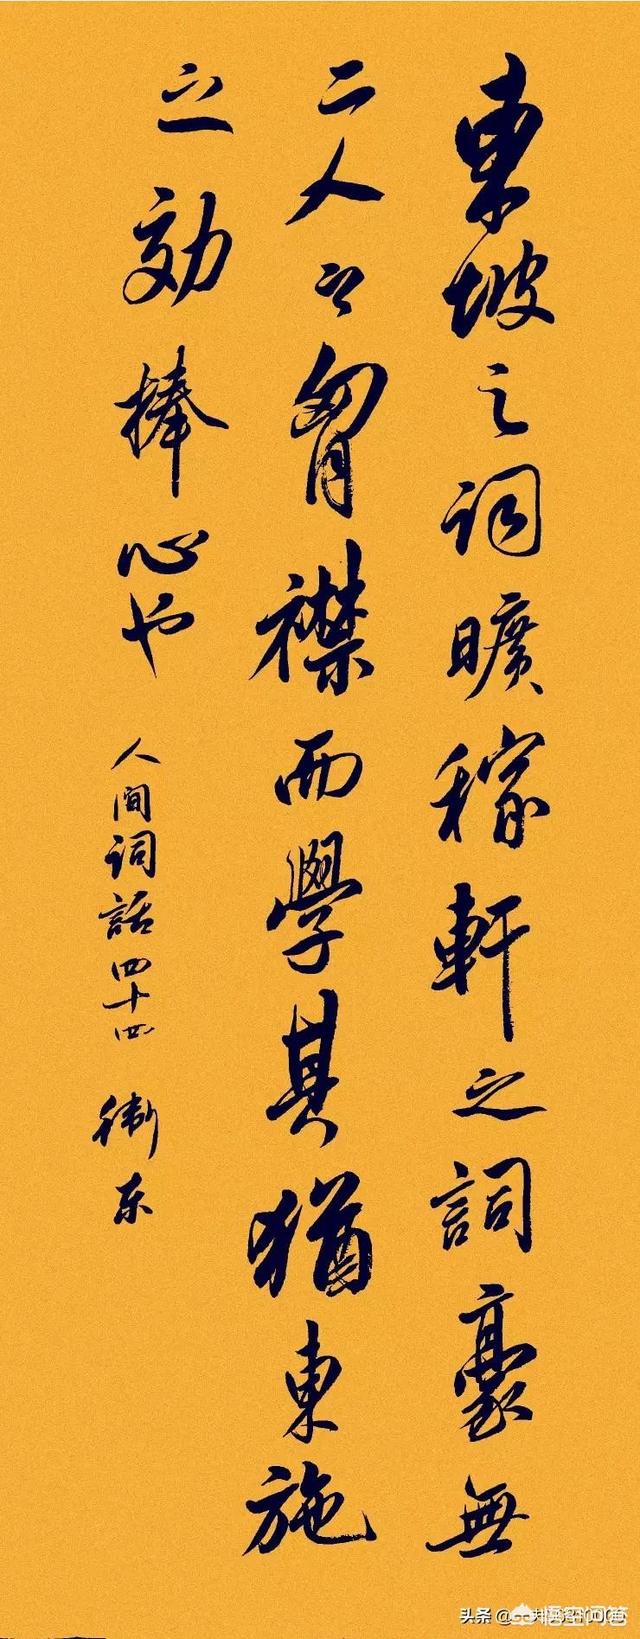 東坡之詞曠稼軒之詞豪無
二人之胷襟而學其猶東施
之効捧心也
人间詞話四十四 衛东
头条
悟空问答